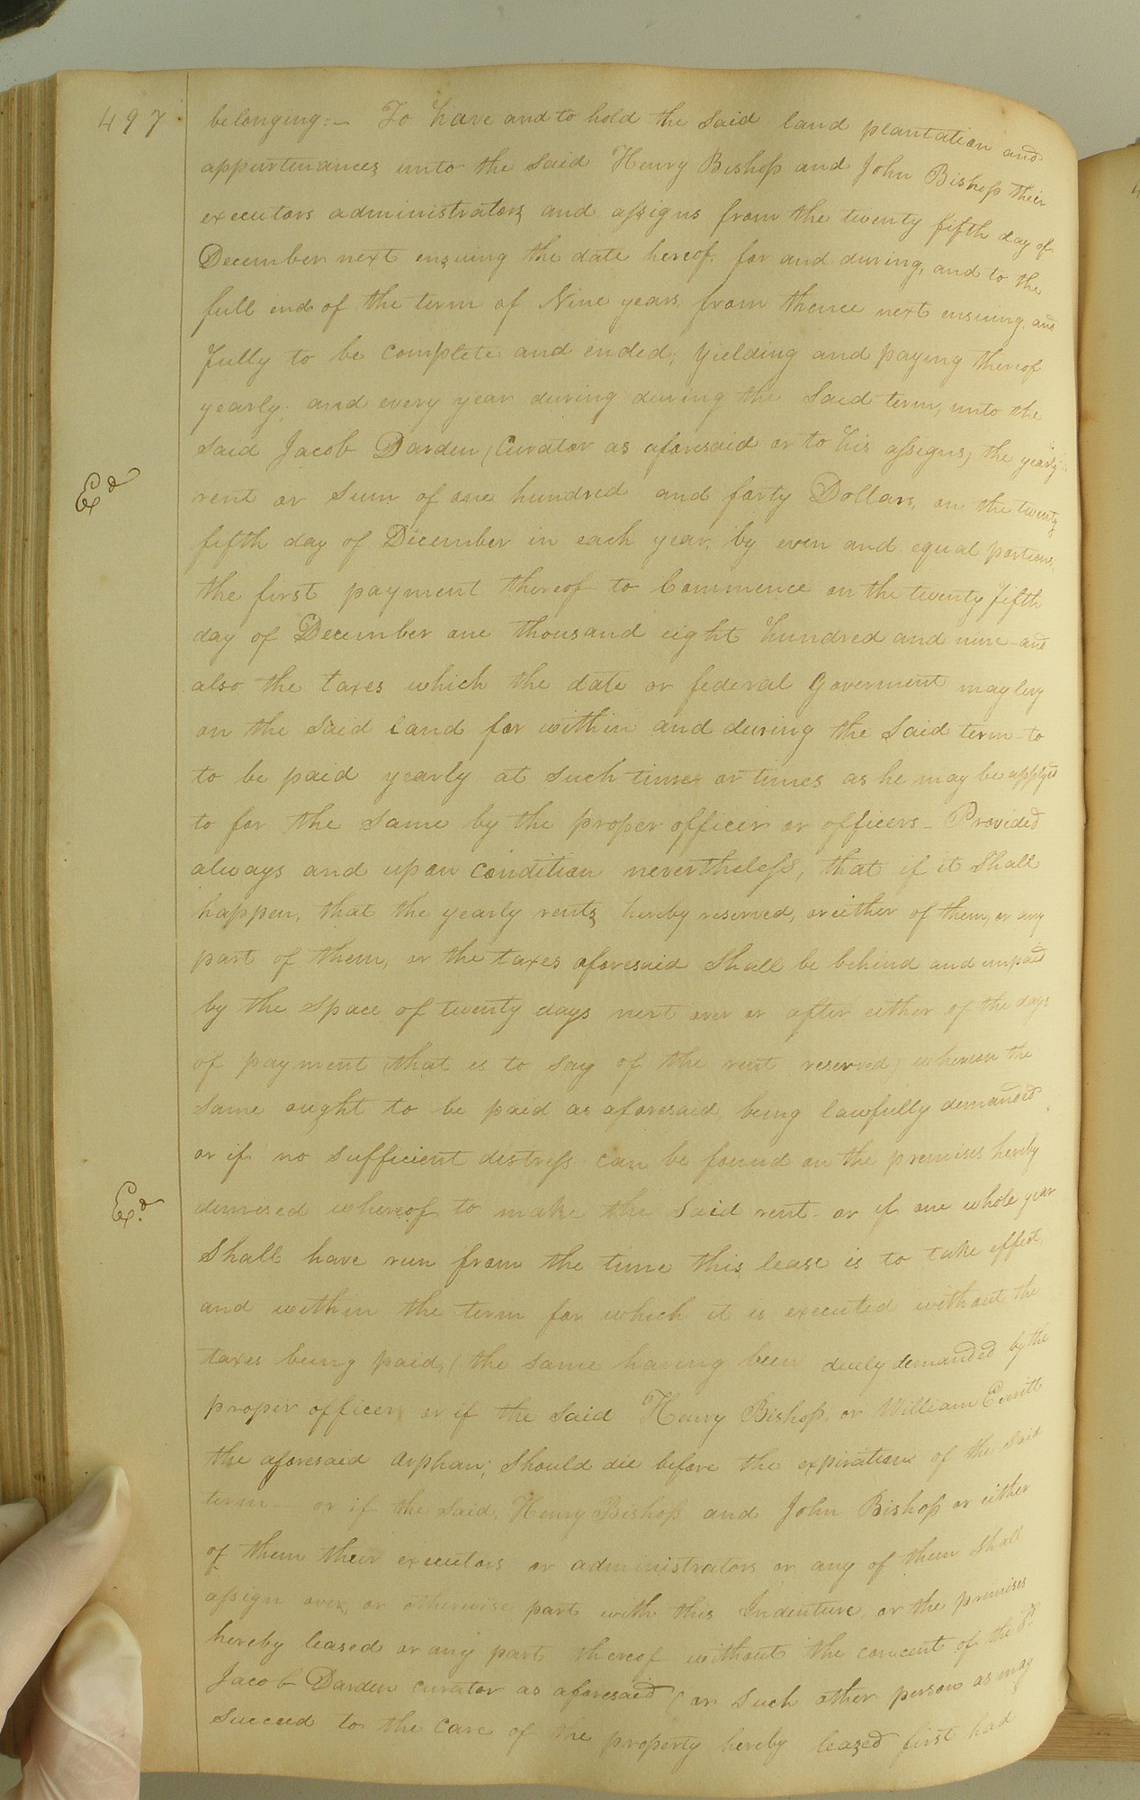 497
belonging:— To have and to hold the said land plantation and
appurtenances unto the said Henry Bishop and John Bishop their
executors administrators and assigns from the twenty fifth day of
December next ensuing the date hereof. for and during, and to the
full end of the term of Nine years from thence next ensuing and
fully to be complete and ended, yielding and paying thereof
yearly. and every year during during the said term, unto the
said Jacob Darden (Curator as aforesaid or to his assigns) the yearly
Exd
rent or sum of one hundred and forty Dollars, on the twenty
fifth day of December in each year, by even and equal portions,
the first payment thereof to Commence on the twenty fifth
day of December one thousand eight hundred and nine and
also the taxes which the date or federal Goverment may levy
on the said land for within and during the said term to
to be paid yearly at such time or times as he may be applyed
to for the same by the proper officer or officers — Provided
always and upon condition nevertheless, that if it shall
happen, that the yearly rents hereby reserved, or either of them, or any
part of them, or the taxes aforesaid shall be behind and unpaid
by the space of twenty days next over or after either of the days
of payment (that is to say of the rent reserved) whereon the
same ought to be paid as aforesaid being lawfully demanded
or if no sufficient distress can be found on the premises hereby
Exd
demised whereof to make the said rent - or if one whole year
shall have run from the time this lease is to take effect
and within the term for which it is executed without the
taxes being paid, (the same having been duely demanded by the
proper officer or if the said Henry Bishop or William
the aforesaid orphan; should die before the expiration of the said
term — or if the said, Henry Bishop and John Bishop or either
of them their executors or administrators or any of them shall
assign over, or otherwise part with this Indenture, or the premises
hereby leased or any part thereof without the concent of the sd.
Jacob Darden curator as aforesaid (or such other person as may
succeed to the care of the property hereby leased first had